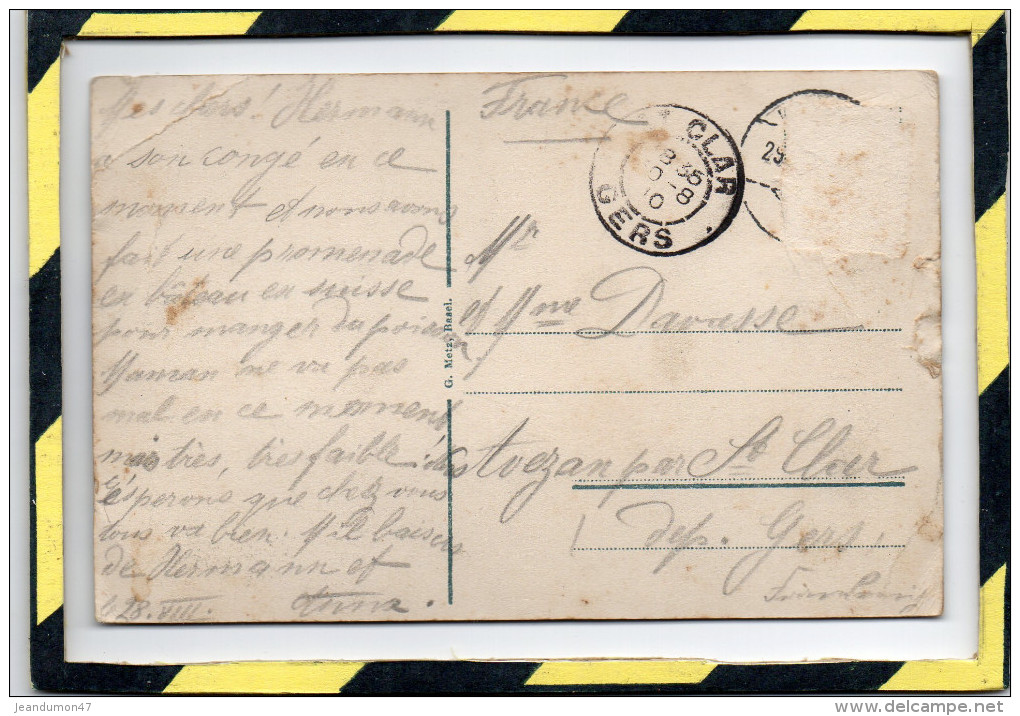 Mes chers! Hermann
a son congé en ce
moment et nous avons
fait une promenade
en bâteau en suisse
pour manger du poisson
Maman ne va pas
mal en ce moment
mais très, très faible
espérons que chez vous
tous va bien. Mil baisers
de Hermann et
Anna.
28. VIII.
G. Metz, Basel.
France
CLAR
GERS
29
Mr
et Mme Davasse
Avezan par St Clar
dep. Gers
Frankreich
jeandumon47
http://www.delcampe.net